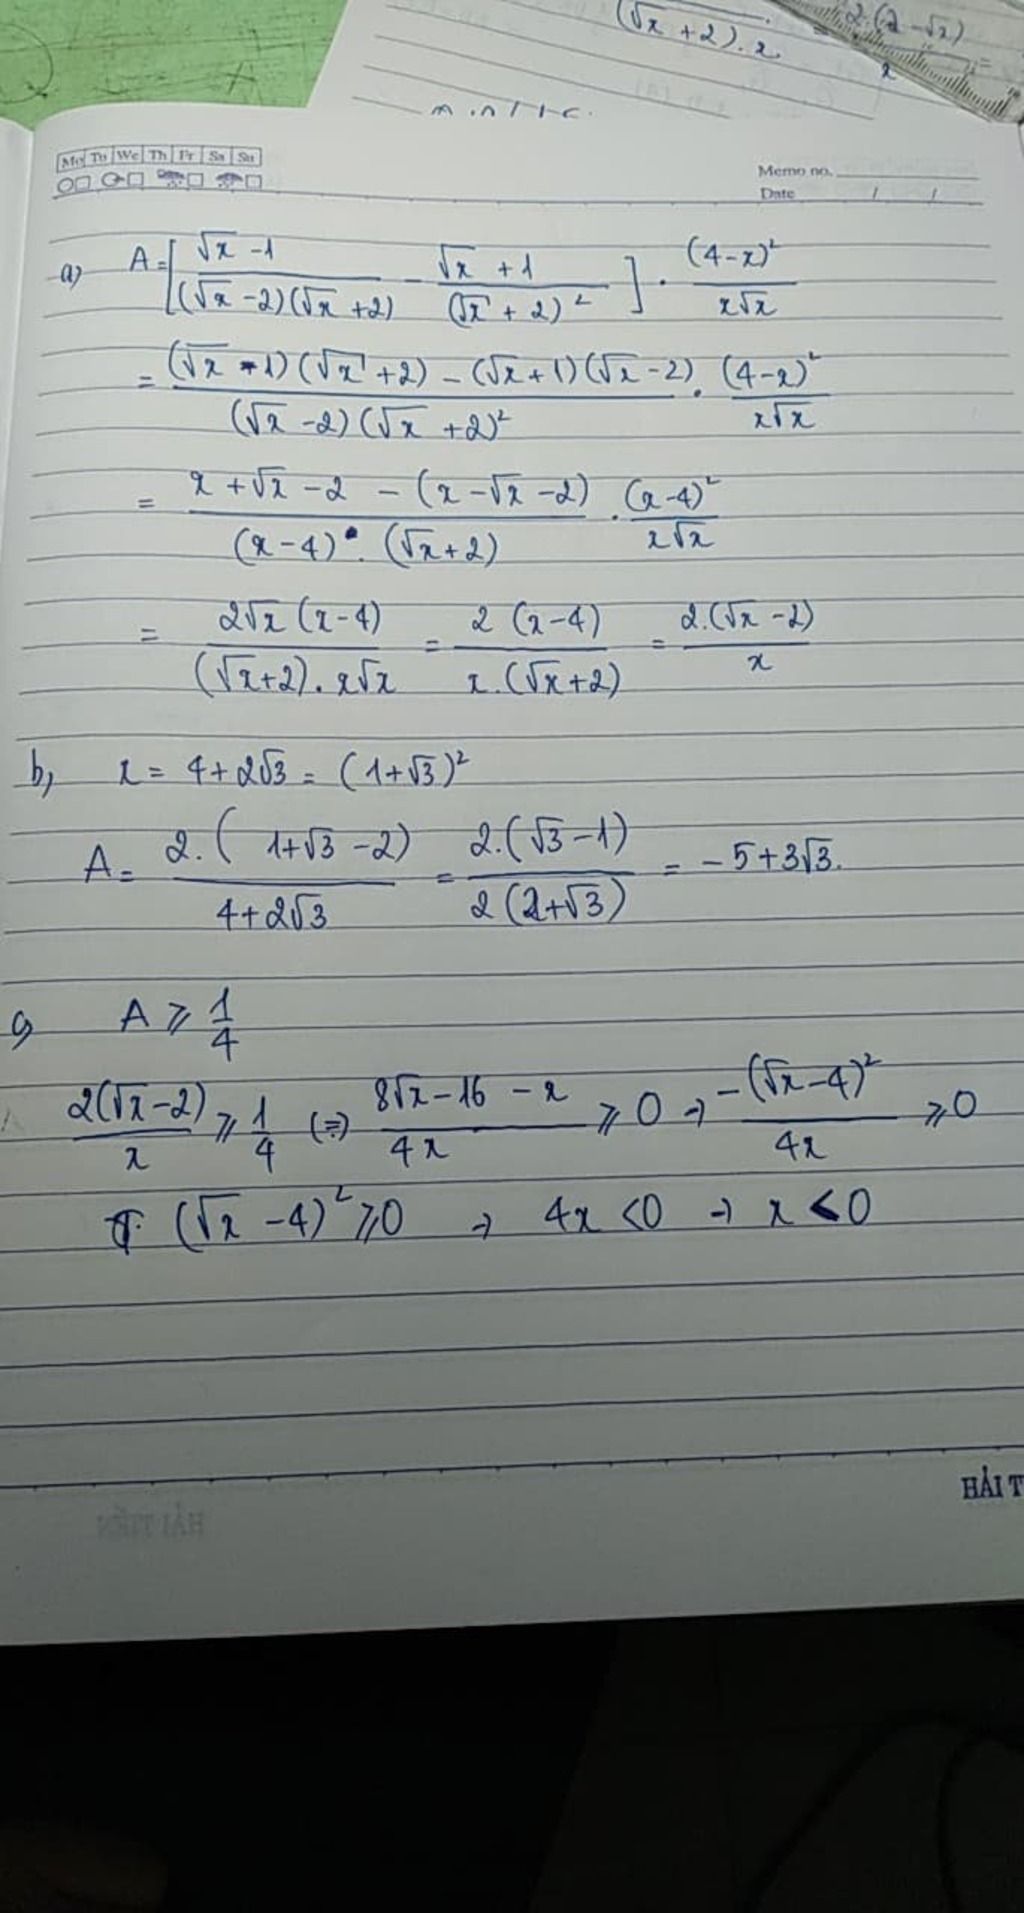 (√x + 2). x
2.(2 - √x)
x
=
Mo Tu We Th Fr Sa Su
Memo no.
Date / /
a) A = [ (√x - 1)/((√x - 2)(√x + 2)) - (√x + 1)/((√x + 2)²) ] . (4 - x)²/(x√x)
= ((√x - 1)(√x + 2) - (√x + 1)(√x - 2))/((√x - 2)(√x + 2)²) . (4 - x)²/(x√x)
= (x + √x - 2 - (x - √x - 2))/((x - 4) . (√x + 2)) . (x - 4)²/(x√x)
= (2√x (x - 4))/((√x + 2) . x√x) = (2 (x - 4))/(x . (√x + 2)) = (2.(√x - 2))/x
b, x = 4 + 2√3 = (1 + √3)²
A = (2.(1 + √3 - 2))/(4 + 2√3) = (2.(√3 - 1))/(2(2 + √3)) = -5 + 3√3.
c, A ⩾ 1/4
(2(√x - 2))/x ⩾ 1/4 (=) (8√x - 16 - x)/(4x) ⩾ 0 → (-(√x - 4)²)/(4x) ⩾ 0
(√x - 4)² ⩾ 0 → 4x < 0 → x < 0
HẢI T
HẢI TIẾN